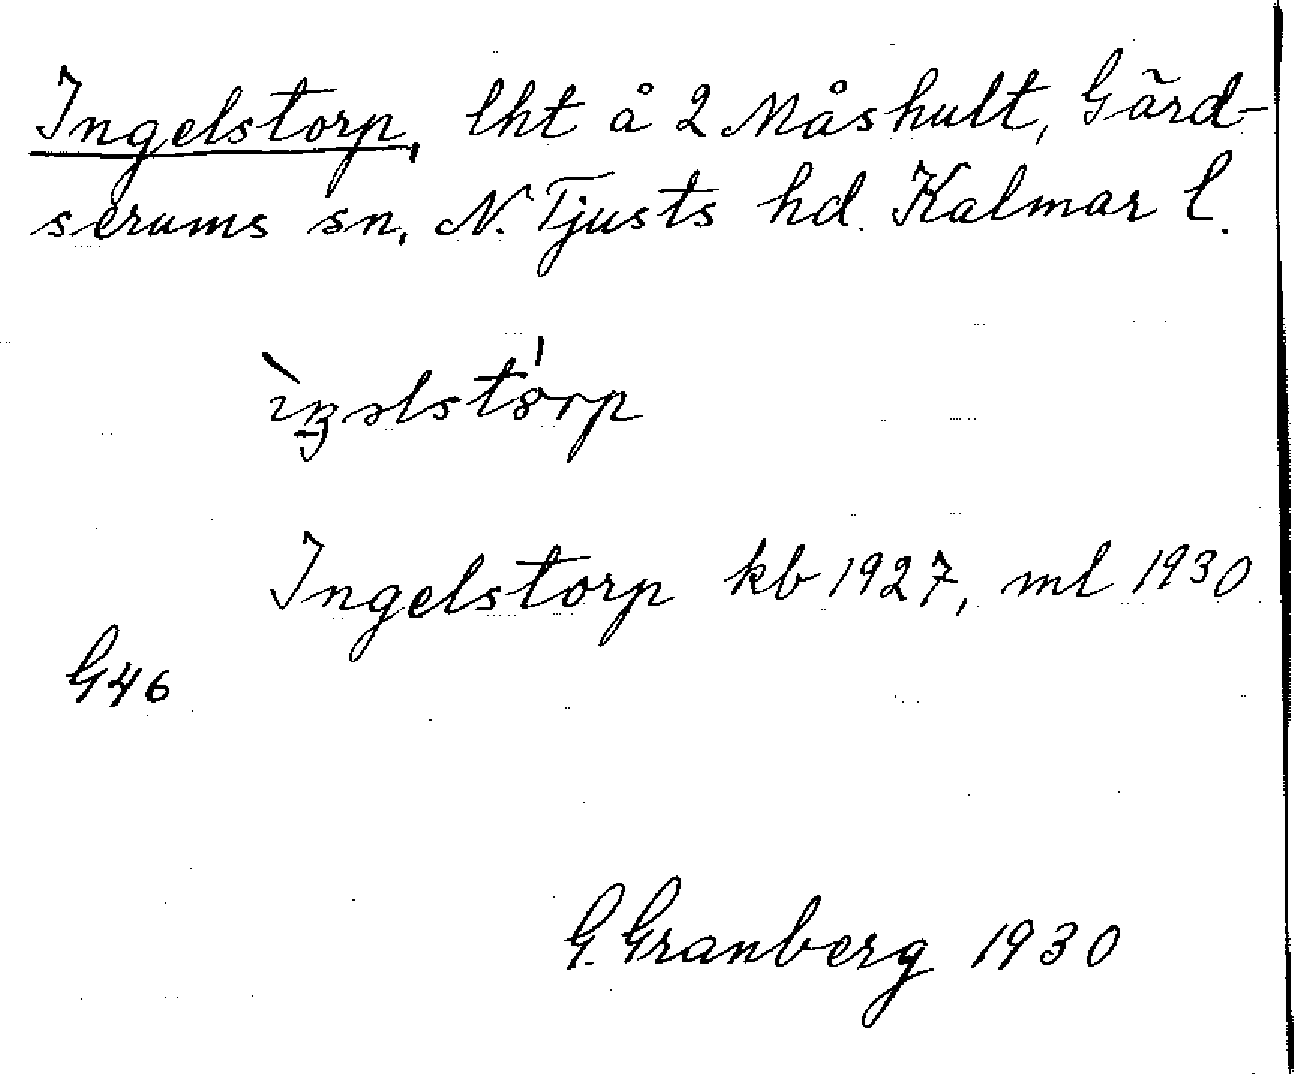 Ingelstorp, lht å 2 Måshult, Gärd-
serums sn, N. Tjusts hd. Kalmar l.
Ingelstorp kb 1927, ml 1930
G46
G. Granberg 1930